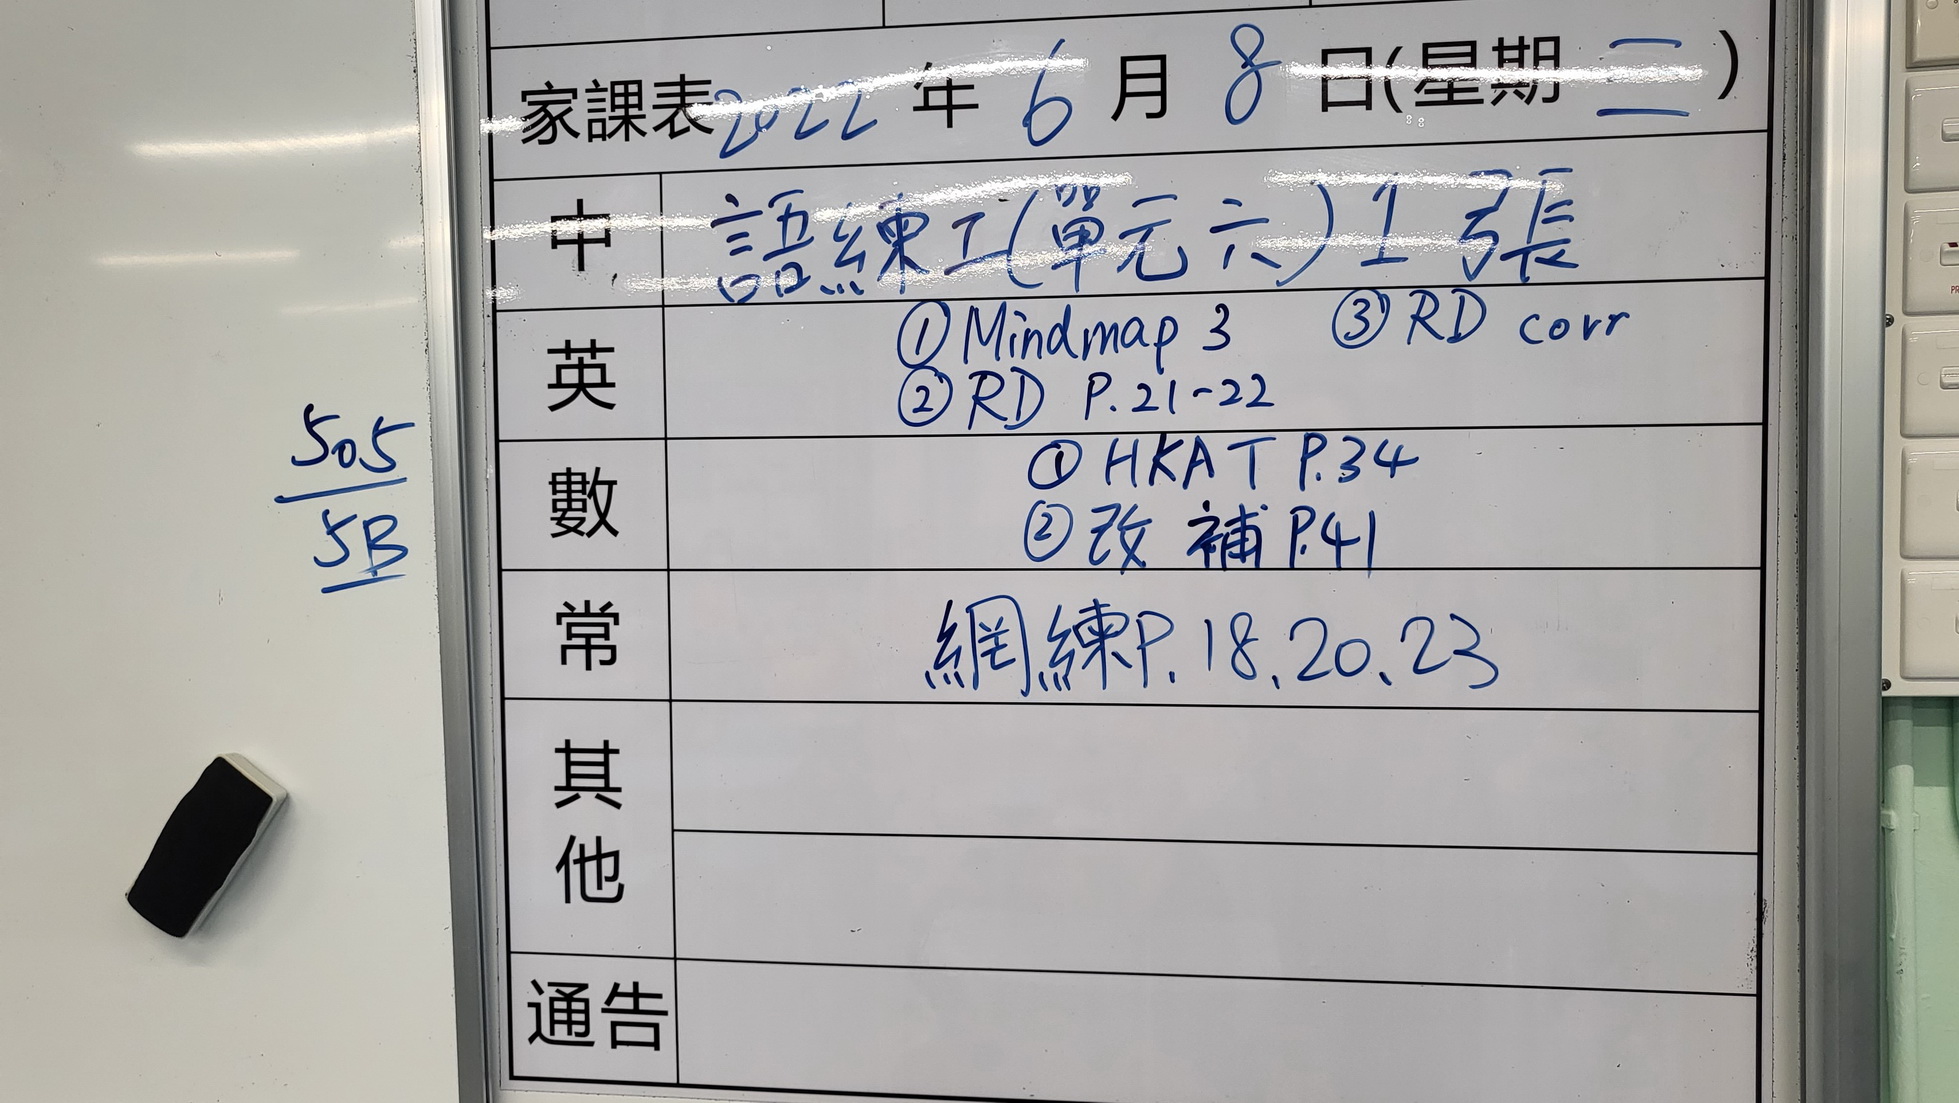 家課表2022年6月8日(星期三)
中 語練工(單元六)1張
英 ①Mindmap 3 ③RD corr
②RD P.21-22
數 ①HKAT P.34
②改 補P.41
常 網練P.18、20、23
其他
通告
505
5B